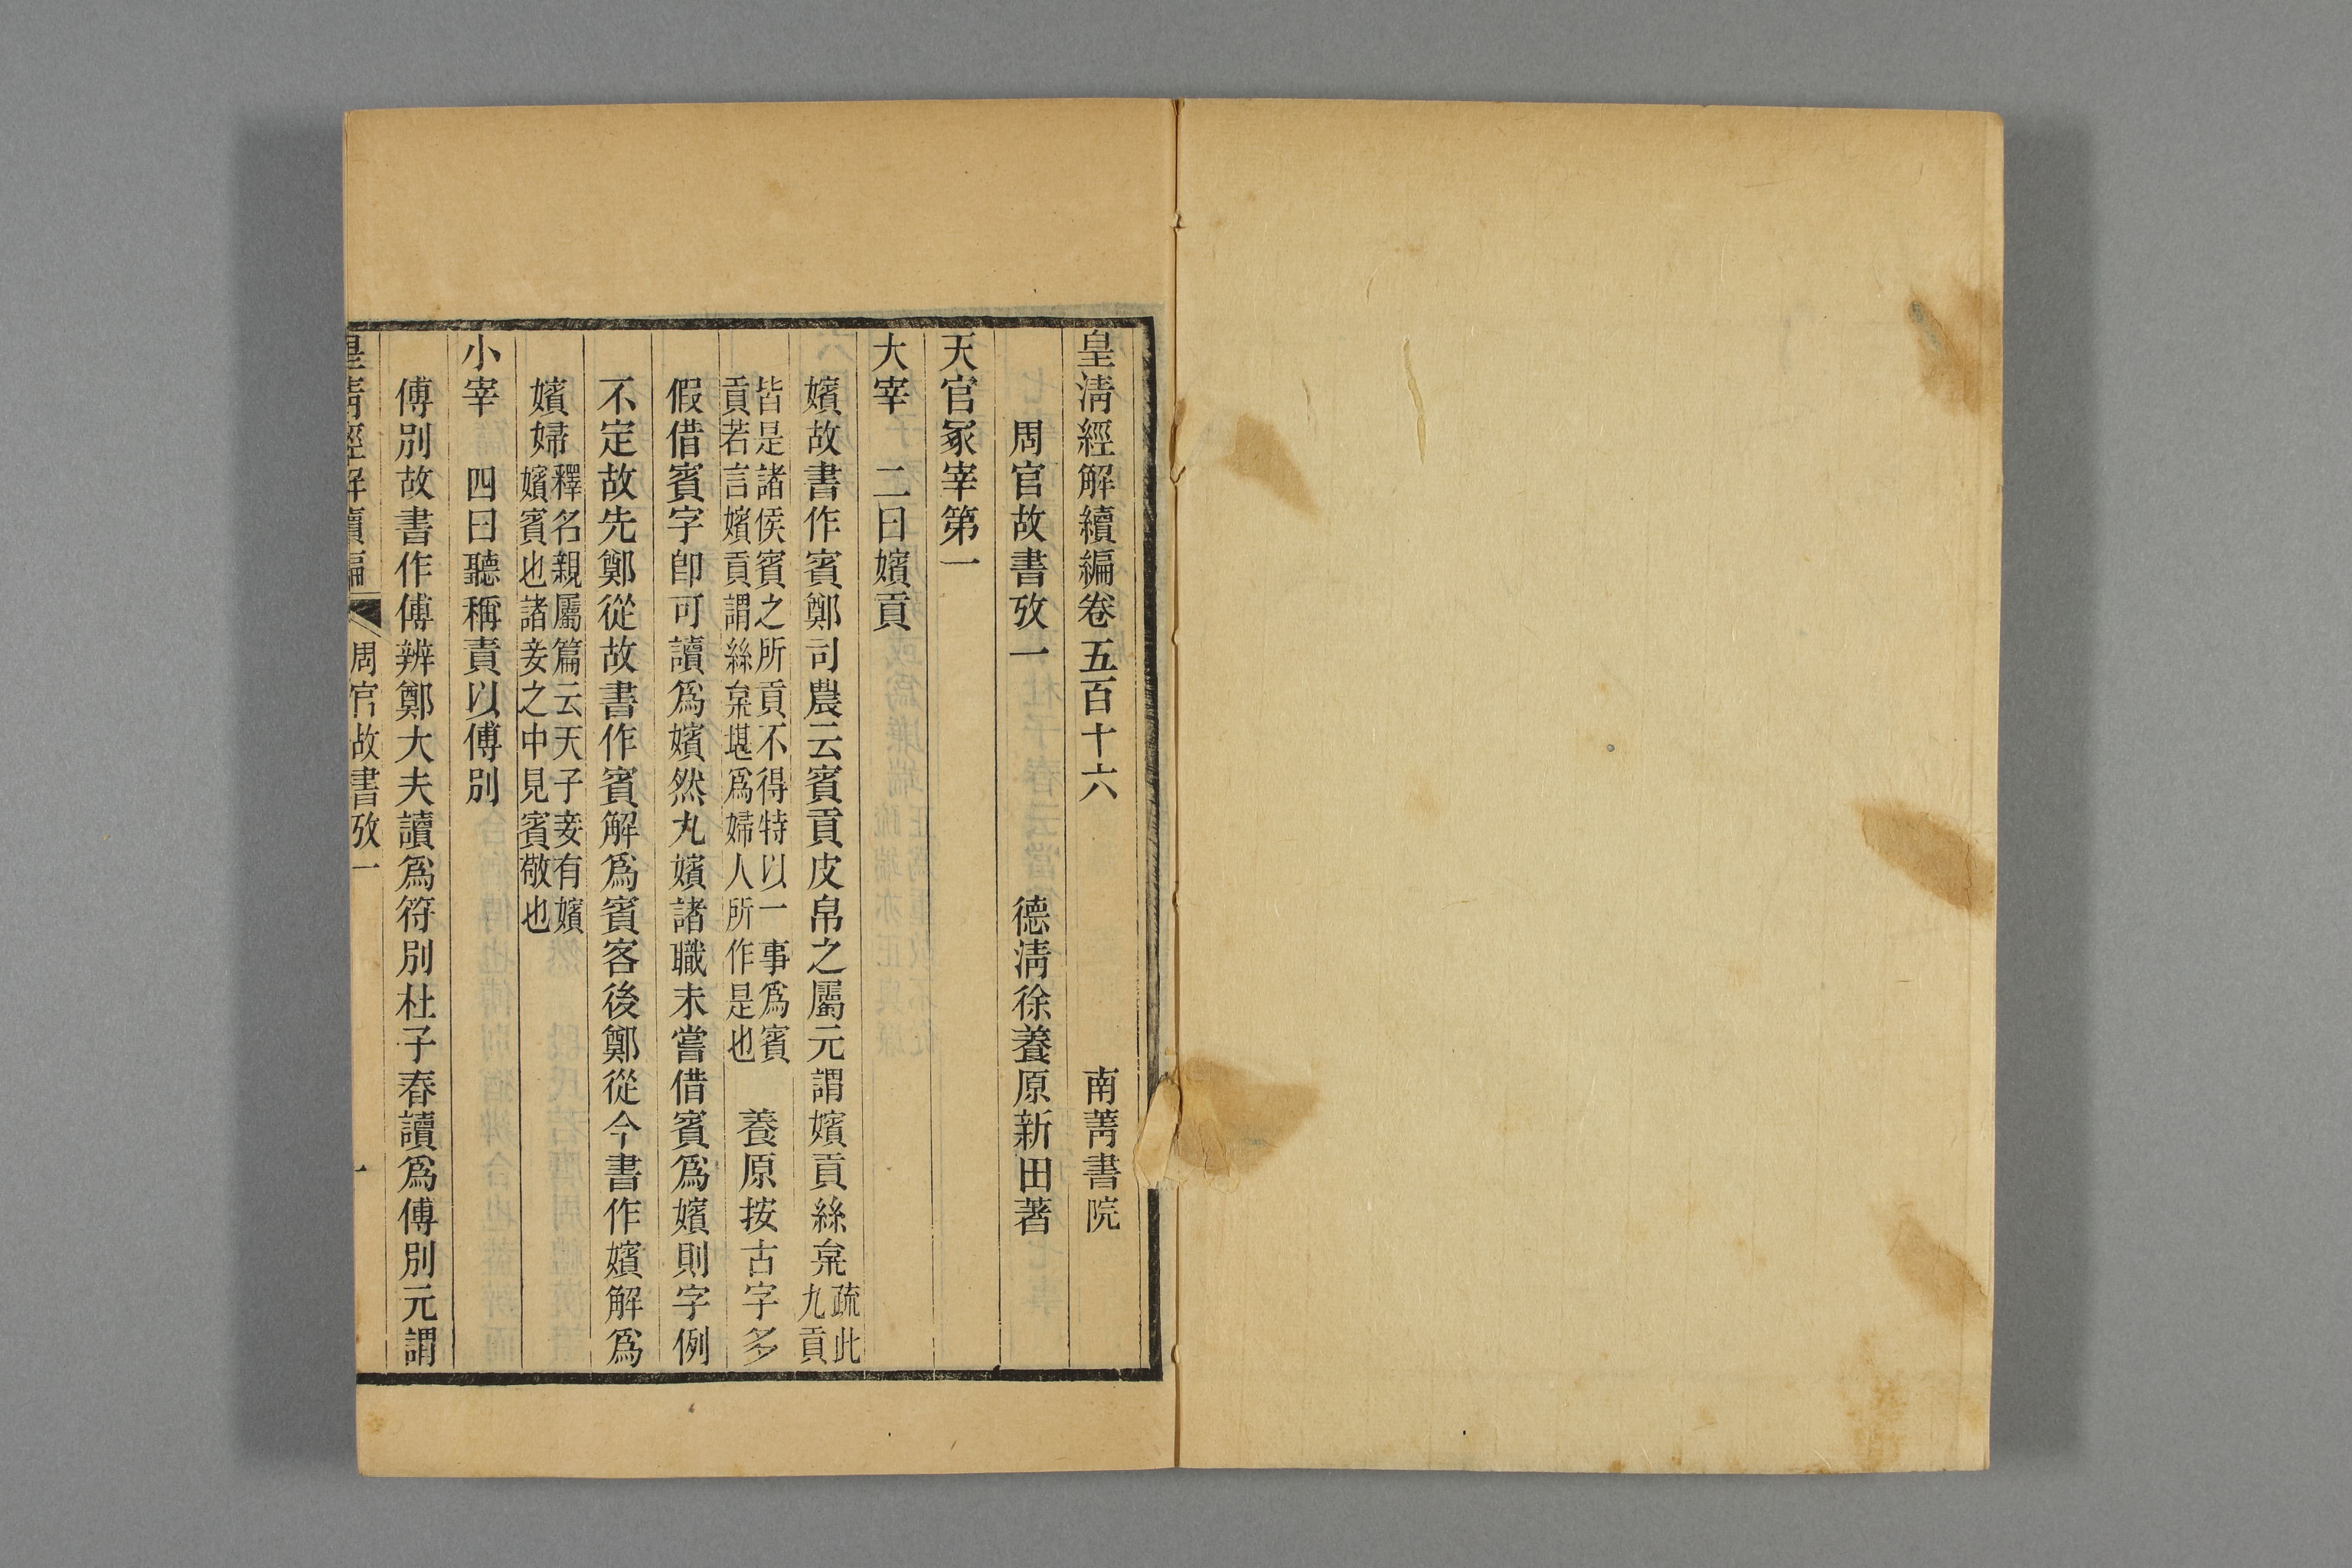 皇淸經解續編卷五百十六　南菁書院
周官故書攷一　德淸徐養原新田著
天官冢宰第一
大宰　二曰嬪貢
嬪故書作賓鄭司農云賓貢皮帛之屬元謂嬪貢絲枲疏此九貢
皆是諸侯賓之所貢不得特以一事爲賓貢若言嬪貢謂絲枲堪爲婦人所作是也　養原按古字多
假借賓字卽可讀爲嬪然九嬪諸職未嘗借賓爲嬪則字例
不定故先鄭從故書作賓解爲賓客後鄭從今書作嬪解爲
嬪婦釋名親屬篇云天子妾有嬪嬪賓也諸妾之中見賓敬也
小宰　四曰聽稱責以傅別
傅別故書作傅辨鄭大夫讀爲符別杜子春讀爲傅別元謂
皇淸經解續編　周官故書攷一　一